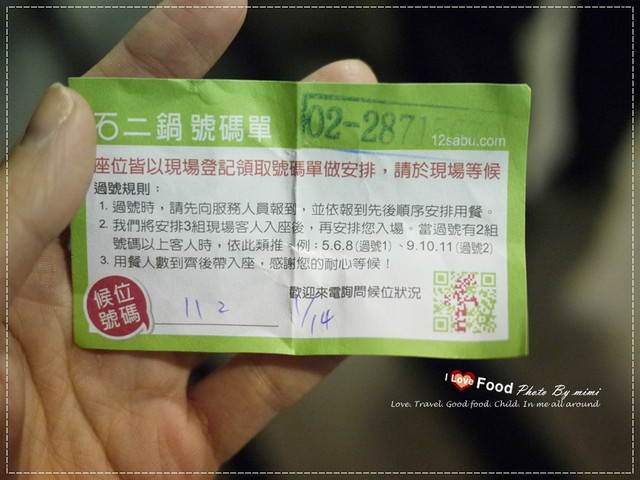 石二鍋 號碼單
02-2871
12sabu.com
座位皆以現場登記領取號碼單做安排，請於現場等候
過號規則：
1. 過號時，請先向服務人員報到，並依報到先後順序安排用餐。
2. 我們將安排3組現場客人入座後，再安排您入場。當過號有2組
號碼以上客人時，依此類推。例：5.6.8(過號1)、9.10.11(過號2)
3. 用餐人數到齊後帶入座，感謝您的耐心等候！
候位
號碼
112
歡迎來電詢問候位狀況
14
I Love Food Photo By mimi
Love. Travel. Good food. Child. In me all around